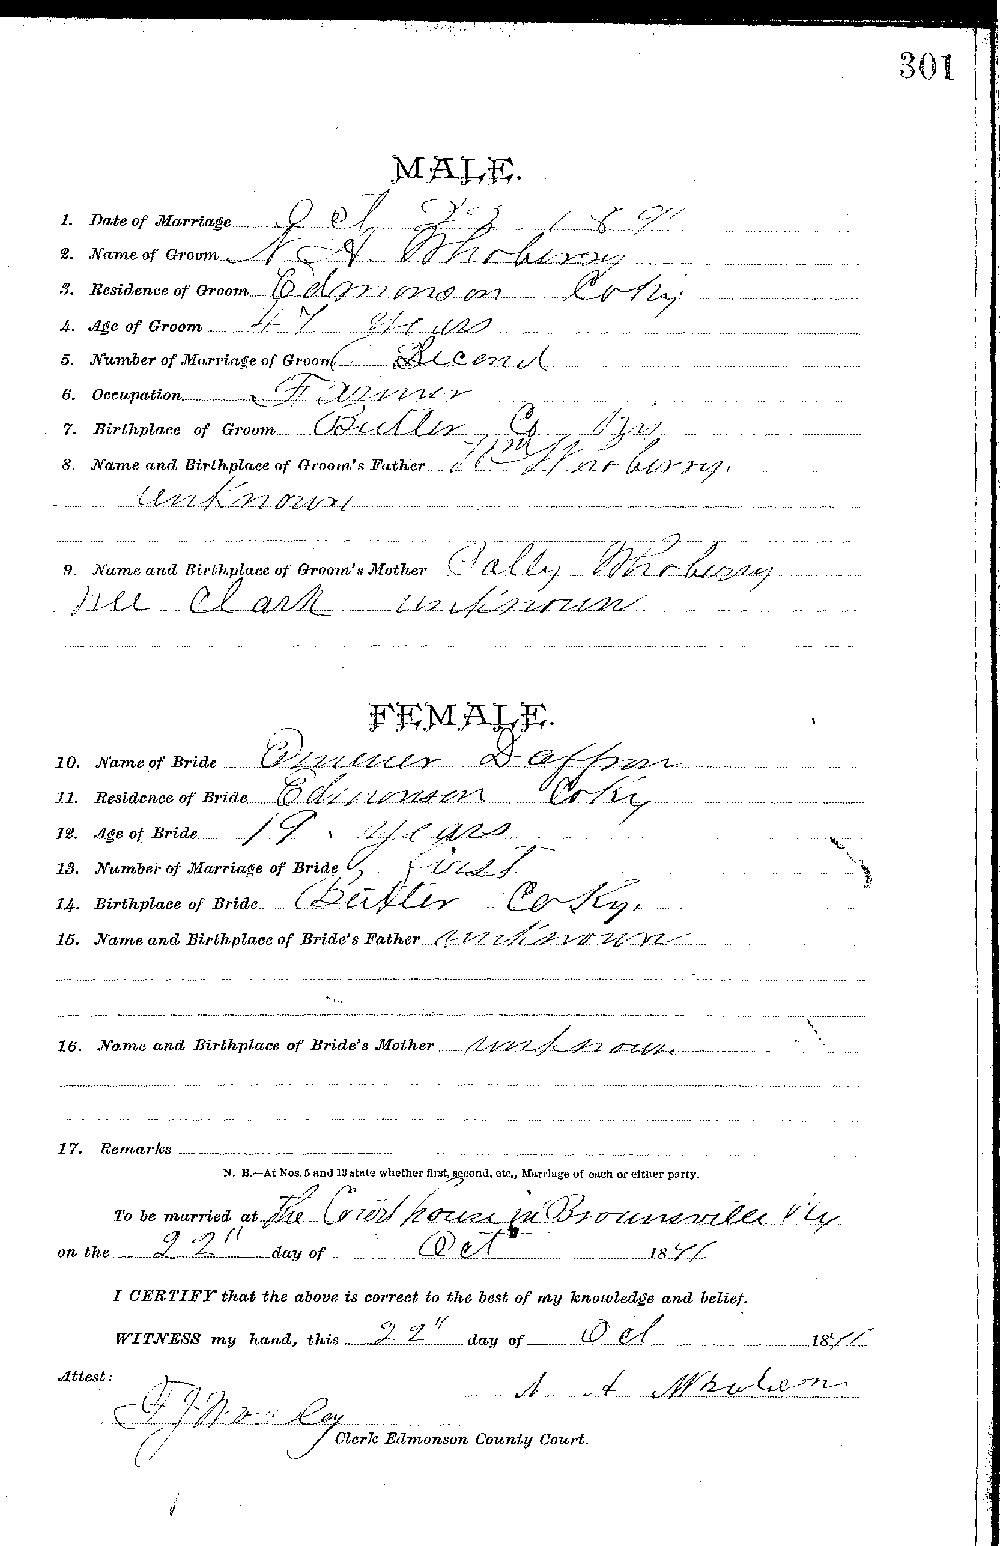 301
MALE.
1. Date of Marriage Oct 22 1891
2. Name of Groom N A Whoberry
3. Residence of Groom Edmonson Co Ky
4. Age of Groom 47 years
5. Number of Marriage of Groom Second
6. Occupation Farmer
7. Birthplace of Groom Butler Co Ky
8. Name and Birthplace of Groom's Father Wm Whoberry.
unknown
9. Name and Birthplace of Groom's Mother Sally Whoberry
nee Clark unknown
FEMALE.
10. Name of Bride Daffron
11. Residence of Bride Edmonson Co Ky
12. Age of Bride 19. years
13. Number of Marriage of Bride first
14. Birthplace of Bride Butler Co Ky.
15. Name and Birthplace of Bride's Father unknown
16. Name and Birthplace of Bride's Mother unknown
17. Remarks
N. B.—At Nos. 5 and 13 state whether first, second, etc., Marriage of each or either party.
To be married at the Court house in Brownsville Ky
on the 22" day of Oct 1891
I CERTIFY that the above is correct to the best of my knowledge and belief.
WITNESS my hand, this 22" day of Oct 1891
Attest:
N A
F J
Clerk Edmonson County Court.